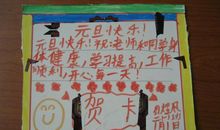 元旦快乐!
元旦快乐!祝老师和同学身
体健康,学习提高!工作
顺利,开心每一天!
贺卡
二月